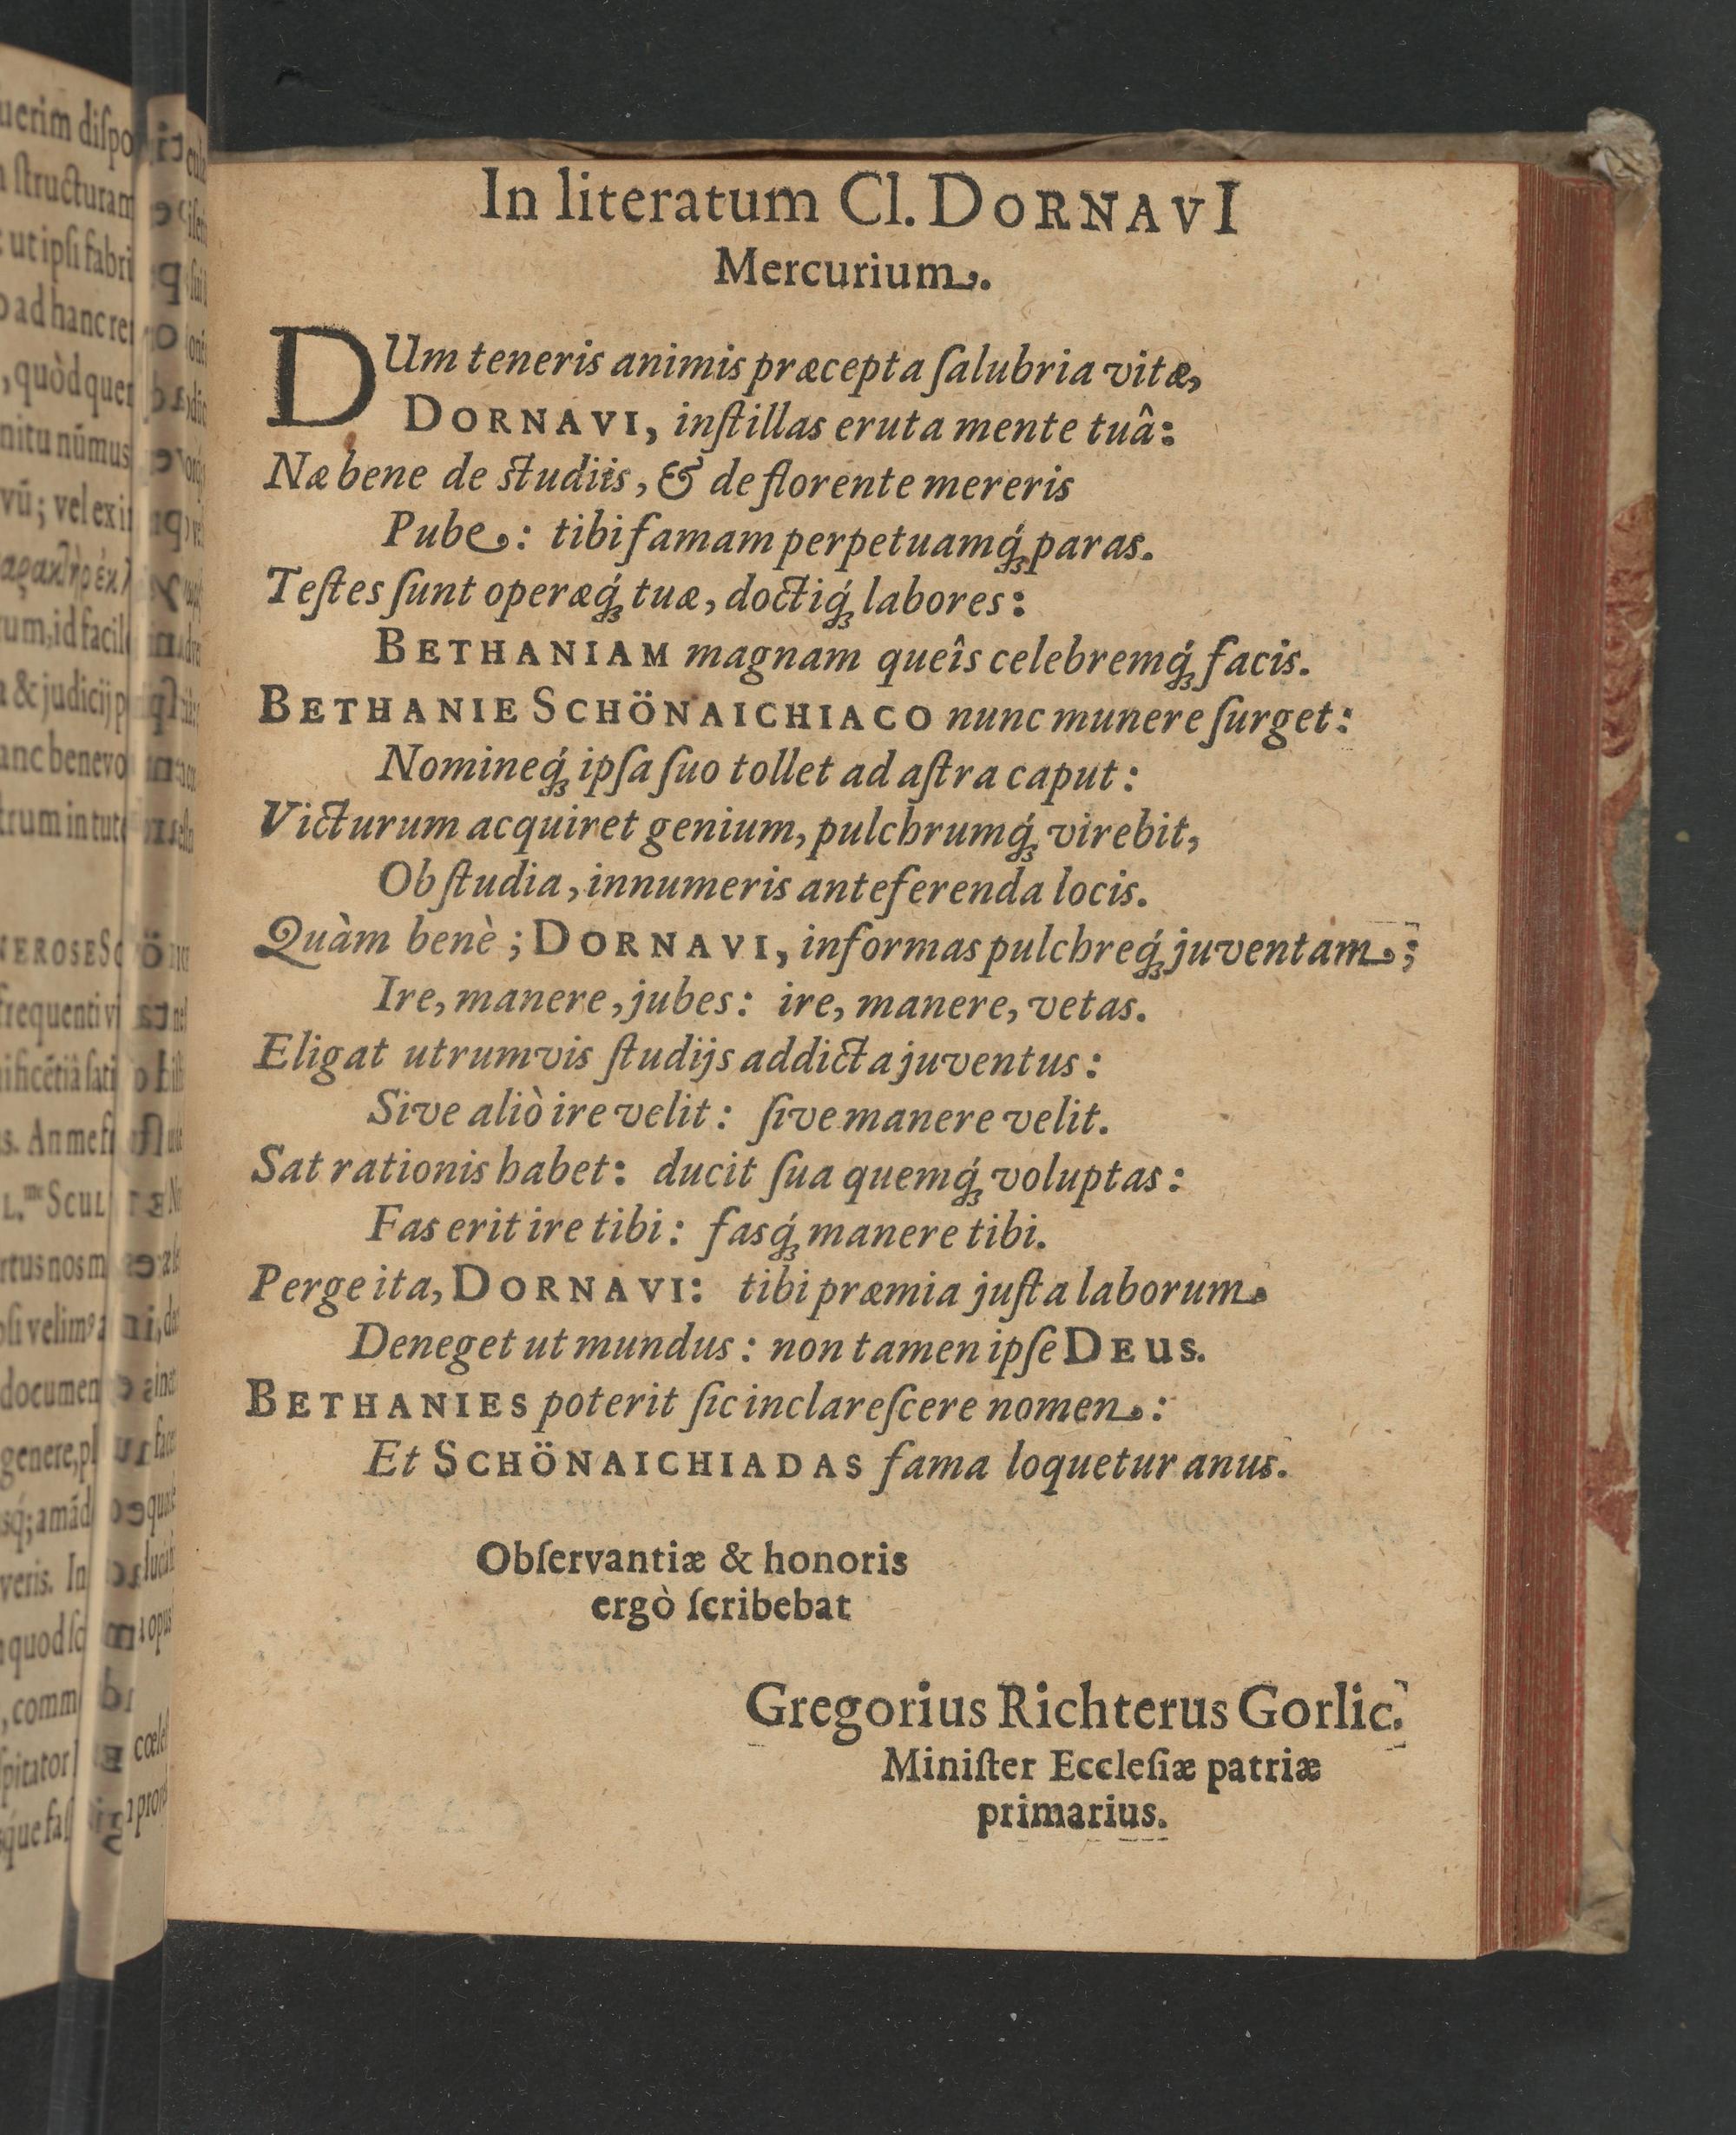 In literatum Cl. DORNAVI
Mercurium.
DUm teneris animis præcepta ſalubria vitæ,
DORNAVI, inſtillas eruta mente tuâ:
Næ bene de ſtudiis, & de florente mereris
Pube: tibi famam perpetuamq́; paras.
Teſtes ſunt operæq́; tuæ, doctiq́; labores:
BETHANIAM magnam queîs celebremq́; facis.
BETHANIE SCHÖNAICHIACO nunc munere ſurget:
Nomineq́; ipſa ſuo tollet ad aſtra caput:
Victurum acquiret genium, pulchrumq́; virebit,
Ob ſtudia, innumeris anteferenda locis.
Quàm benè; DORNAVI, informas pulchreq́; juventam;
Ire, manere, jubes: ire, manere, vetas.
Eligat utrumvis ſtudijs addicta juventus:
Sive aliò ire velit: ſive manere velit.
Sat rationis habet: ducit ſua quemq́; voluptas:
Fas erit ire tibi: fasq́; manere tibi.
Perge ita, DORNAVI: tibi præmia juſta laborum
Deneget ut mundus: non tamen ipſe DEUS.
BETHANIES poterit ſic inclareſcere nomen:
Et SCHÖNAICHIADAS fama loquetur anus.
Obſervantiæ & honoris
ergò ſcribebat
Gregorius Richterus Gorlic.
Miniſter Eccleſiæ patriæ
primarius.